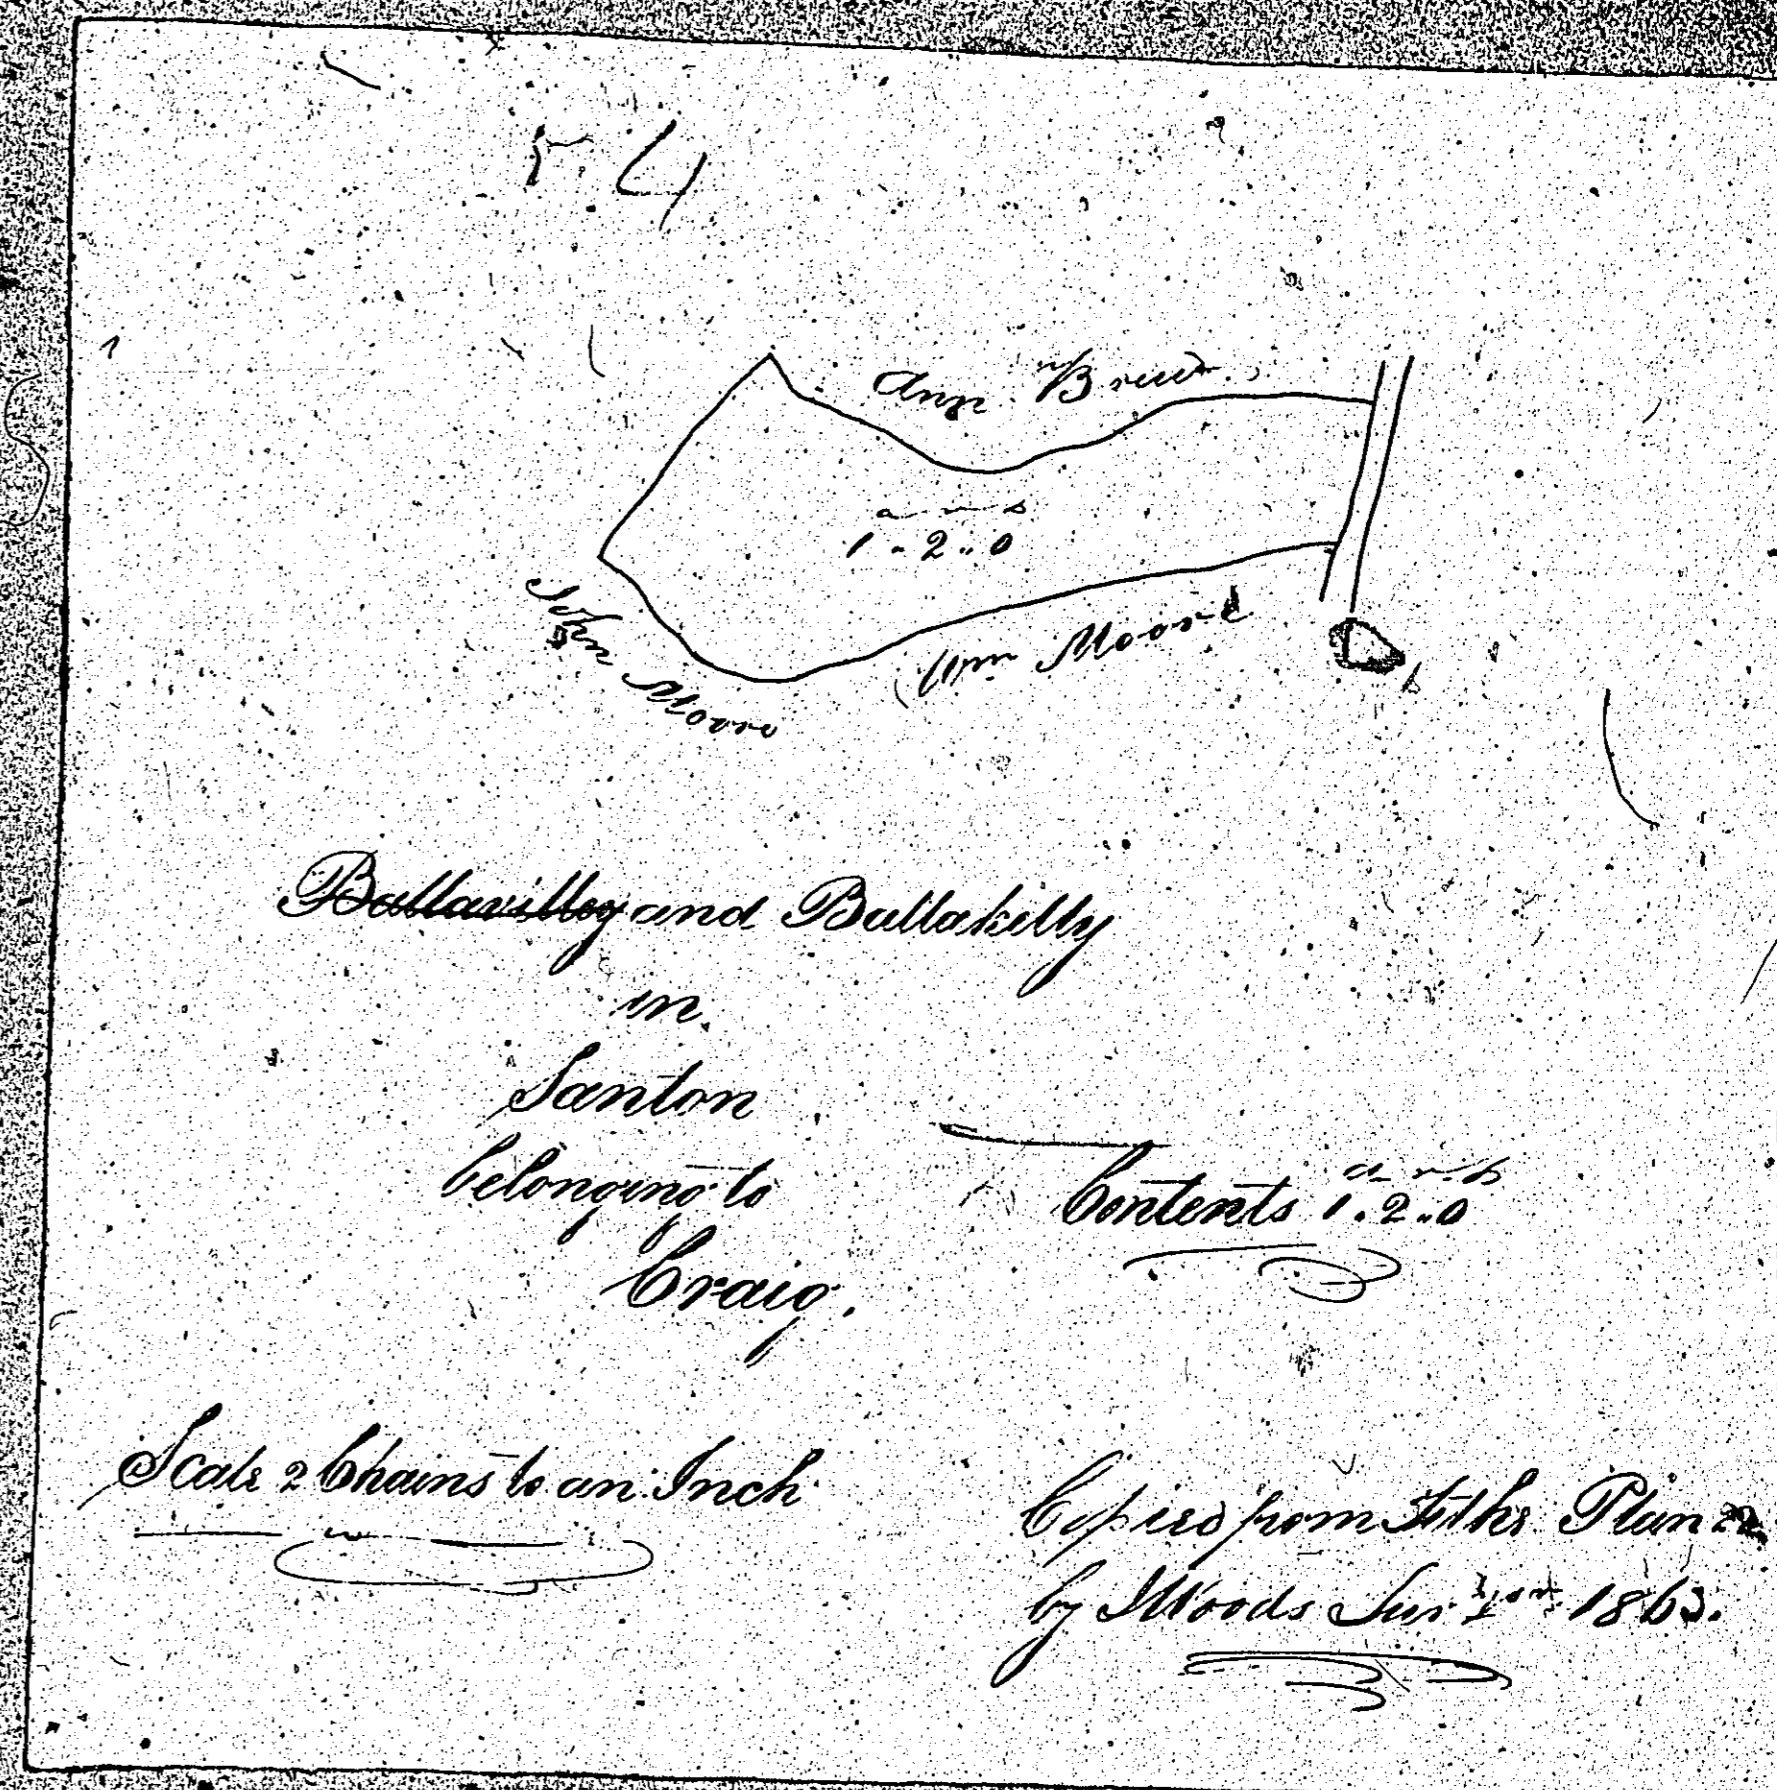 Ann Brew
a r p
1 .. 2 .. 0
John Moore
Wm Moore
Ballavilley and Ballakilly
in
Santon
belonging to
Craig.
a r p
Contents 1 . 2 .. 0
Scale 2 Chains to an Inch
Copied from Tithe Plan
by J Woods Sur 1863.